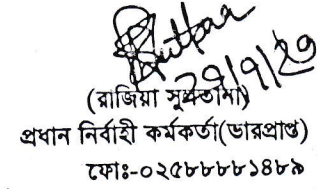 ২৭/৭/২৩
(রাজিয়া সুলতানা)
প্রধান নির্বাহী কর্মকর্তা(ভারপ্রাপ্ত)
ফোঃ-০২৫৮৮৮৮১৪৮৯